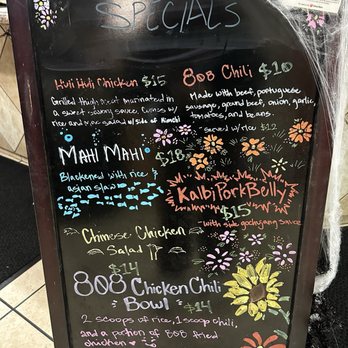 SPECIALS
Huli Huli Chicken $15
Grilled thigh meat marinated in
a sweet savory sauce. Comes w/
rice and mac salad w/ side of Kimchi
808 Chili $10
Made with beef, portuguese
sausage, ground beef, onion, garlic,
tomatoes, and beans.
served w/ rice $12
Mahi Mahi $18
Blackened with rice &
asian slaw
Kalbi Pork Belly
$15
with side gochujang sauce
Chinese Chicken
Salad
$14
808 Chicken Chili
Bowl $14
2 scoops of rice, 1 scoop chili,
and a portion of 808 fried
chicken